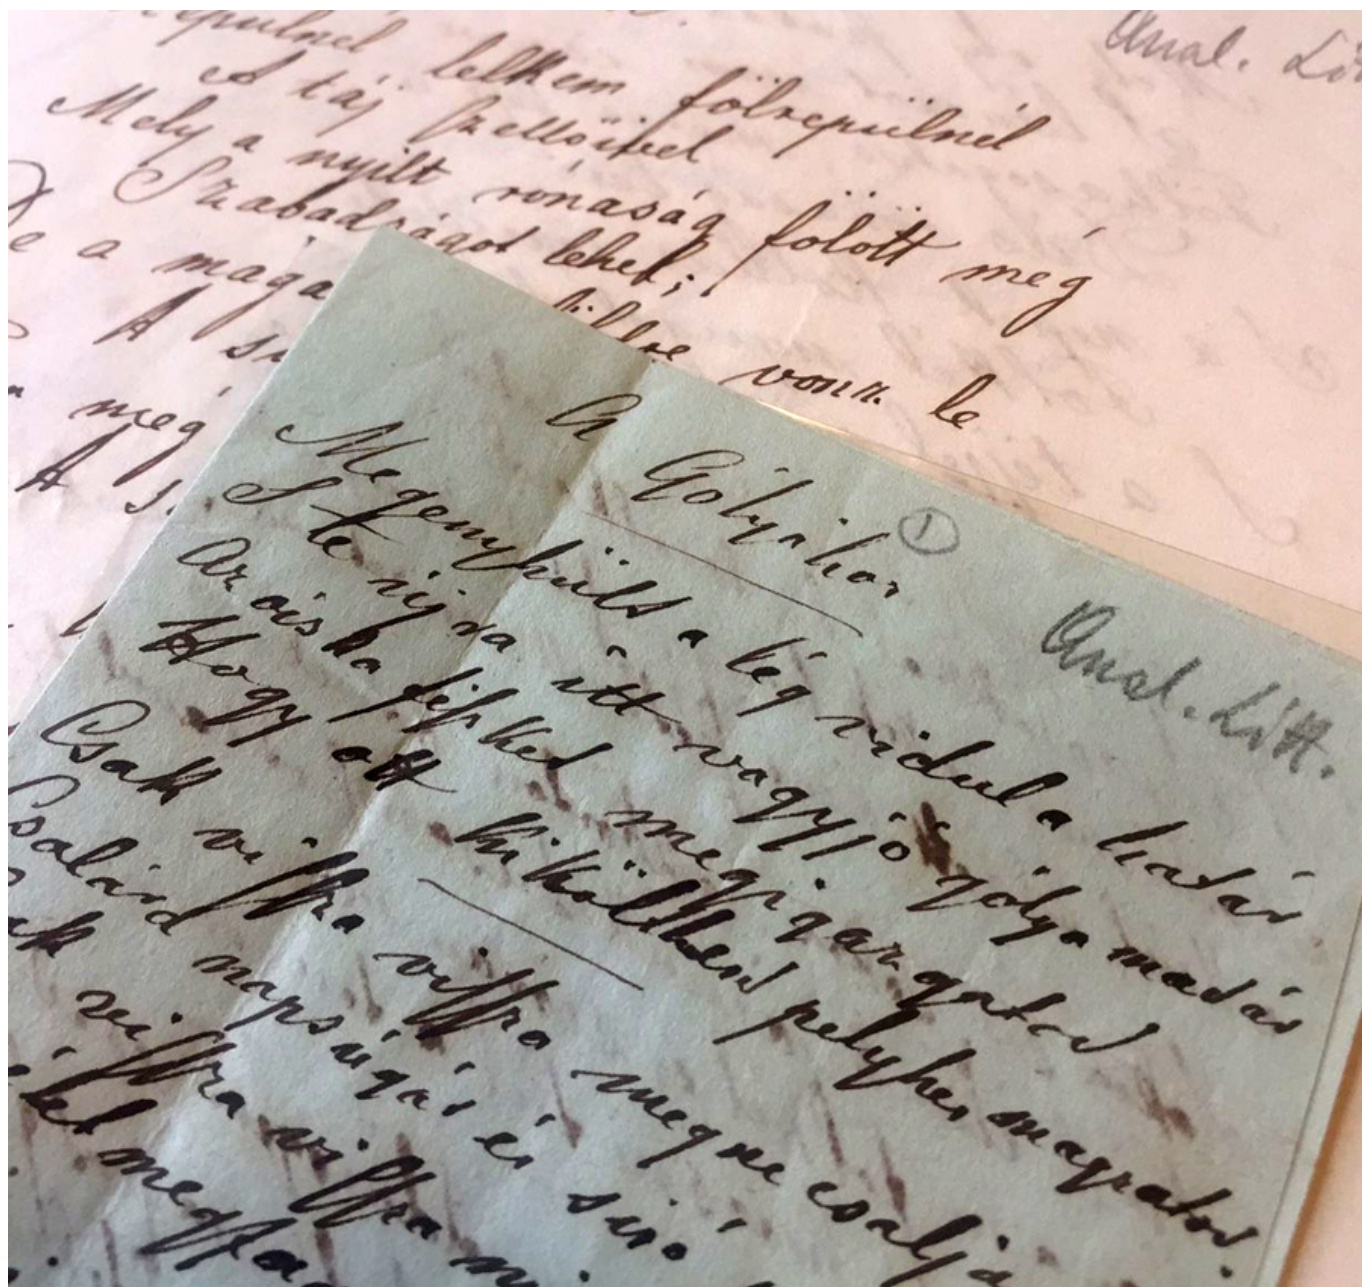 lelkem fölrepülnél
A táj szellőivel
Mely a nyilt rónaság fölött még
Szabadságot lehel;
De a maga vonz le
A
még
A s
Anal. Litt.
A Gólyához
1
Anal. Litt.
Megenyhült a lég vidul a határ
S te ujra itt vagy jó gólya madár
Az ócska fészket megigazgatod
Hogy ott kikölthesd pelyhes magzatod.
Csak vissza vissza meg ne csaljanak
Csalárd napsugár és siró
vissza vissza
élet megfa